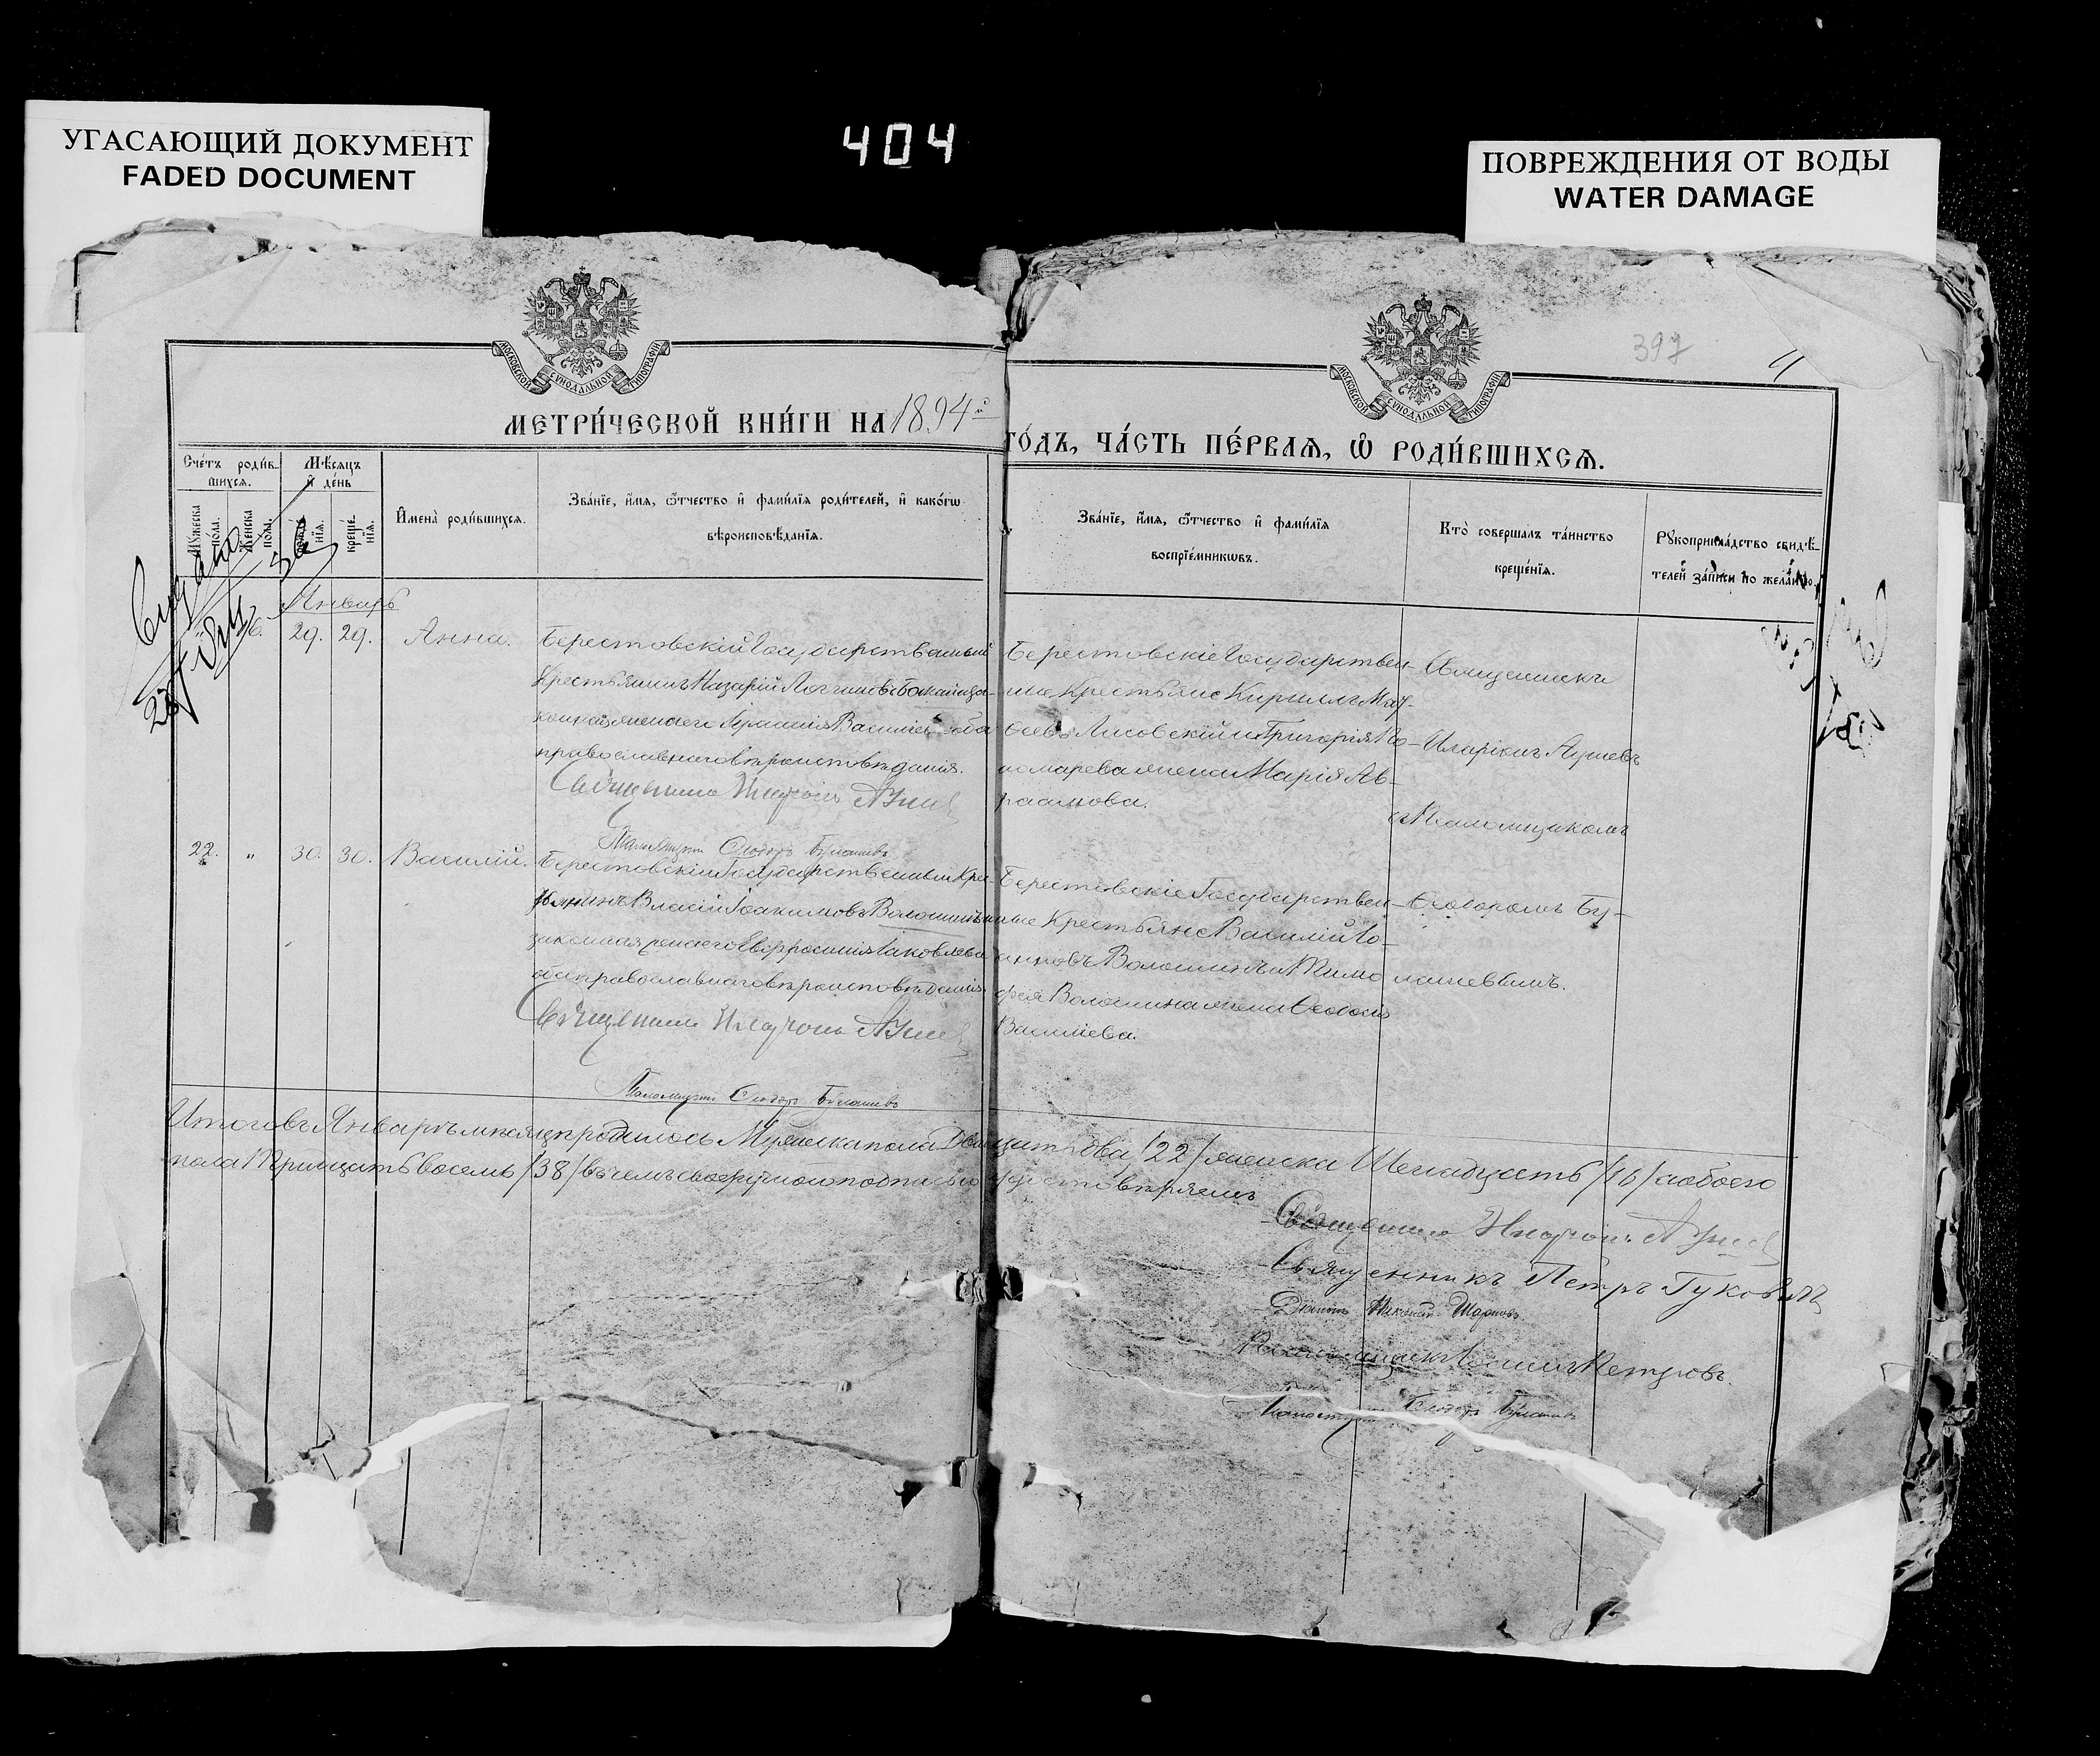 УГАСАЮЩИЙ ДОКУМЕНТ
FADED DOCUMENT
404
ПОВРЕЖДЕНИЯ ОТ ВОДЫ
WATER DAMAGE
МОСКОВСКОЙ СУНОДАЛЬНОЙ ТИПОГРАФІИ
МОСКОВСКОЙ СУНОДАЛЬНОЙ ТИПОГРАФІИ
397
МЕТРИ́ЧЕСКОЙ КНИ́ГИ НА 1894й
ГО́ДЪ, ЧА́СТЬ ПЕ́РВАЯ, Ѽ РОДИ́ВШИХСѦ.
Сче́тъ роди́вшихсѧ.
Мѣ́сяцъ и҆ де́нь
Мꙋ́жеска по́ла.
Же́нска по́ла.
рожде́нїѧ.
креще́нїѧ.
И҆мена̀ роди́вшихсѧ.
Зва́нїе, и҆́мѧ, ѻ҆́тчество и҆ фами́лїѧ роди́телей, и҆ како́гѡ
вѣроисповѣ́данїѧ.
Зва́нїе, и҆́мѧ, ѻ҆́тчество и҆ фами́лїѧ
воспрїе́мникѡвъ.
Кто̀ совершалъ та́инство
креще́нїѧ.
Рꙋкоприкла́дство свидѣ́-
телей за́писи по жела́нїю.
Январь
16. 29. 29. Анна.
Берестовскій Государственный
Крестьянинъ Назарій Логгиновъ
законная жена его Васильева оба
православнаго вѣроисповѣданія.
Священникъ Иларіонъ
Псаломщикъ Ѳеодоръ
Берестовскіе Государствен-
ные Крестьяне Кириллъ Мат-
ѳеевъ Лисовскій и Григорія По-
номарева жена Марія Ав-
раамова.
Священникъ
Иларіонъ
съ Псаломщикомъ
22. „ 30. 30. Василій.
Берестовскій Государственный Крес-
тьянинъ Власій Іоакимовъ Волошинъ и
законная жена его Евфросинія Іаковлева
оба православнаго вѣроисповѣданія.
Священникъ Иларіонъ
Псаломщикъ Ѳеодоръ
Берестовскіе Государствен-
ные Крестьяне Василій Іо-
анновъ Волошинъ и Тимо
фея Волошина жена Ѳеодосія
Василіева.
Ѳеодоромъ Бу-
Итого въ Январѣ мѣсяцѣ родилось Мужеска пола Двадцать два /22/ женска Шестнадцать /16/ а обоего
пола Тридцать восемь /38/ въ чемъ своеручною подписью удостовѣряемъ
Священникъ Иларіонъ
Священникъ Петръ Гуковичъ
Псаломщикъ Іоаннъ Петровъ.
Псаломщикъ Ѳеодоръ